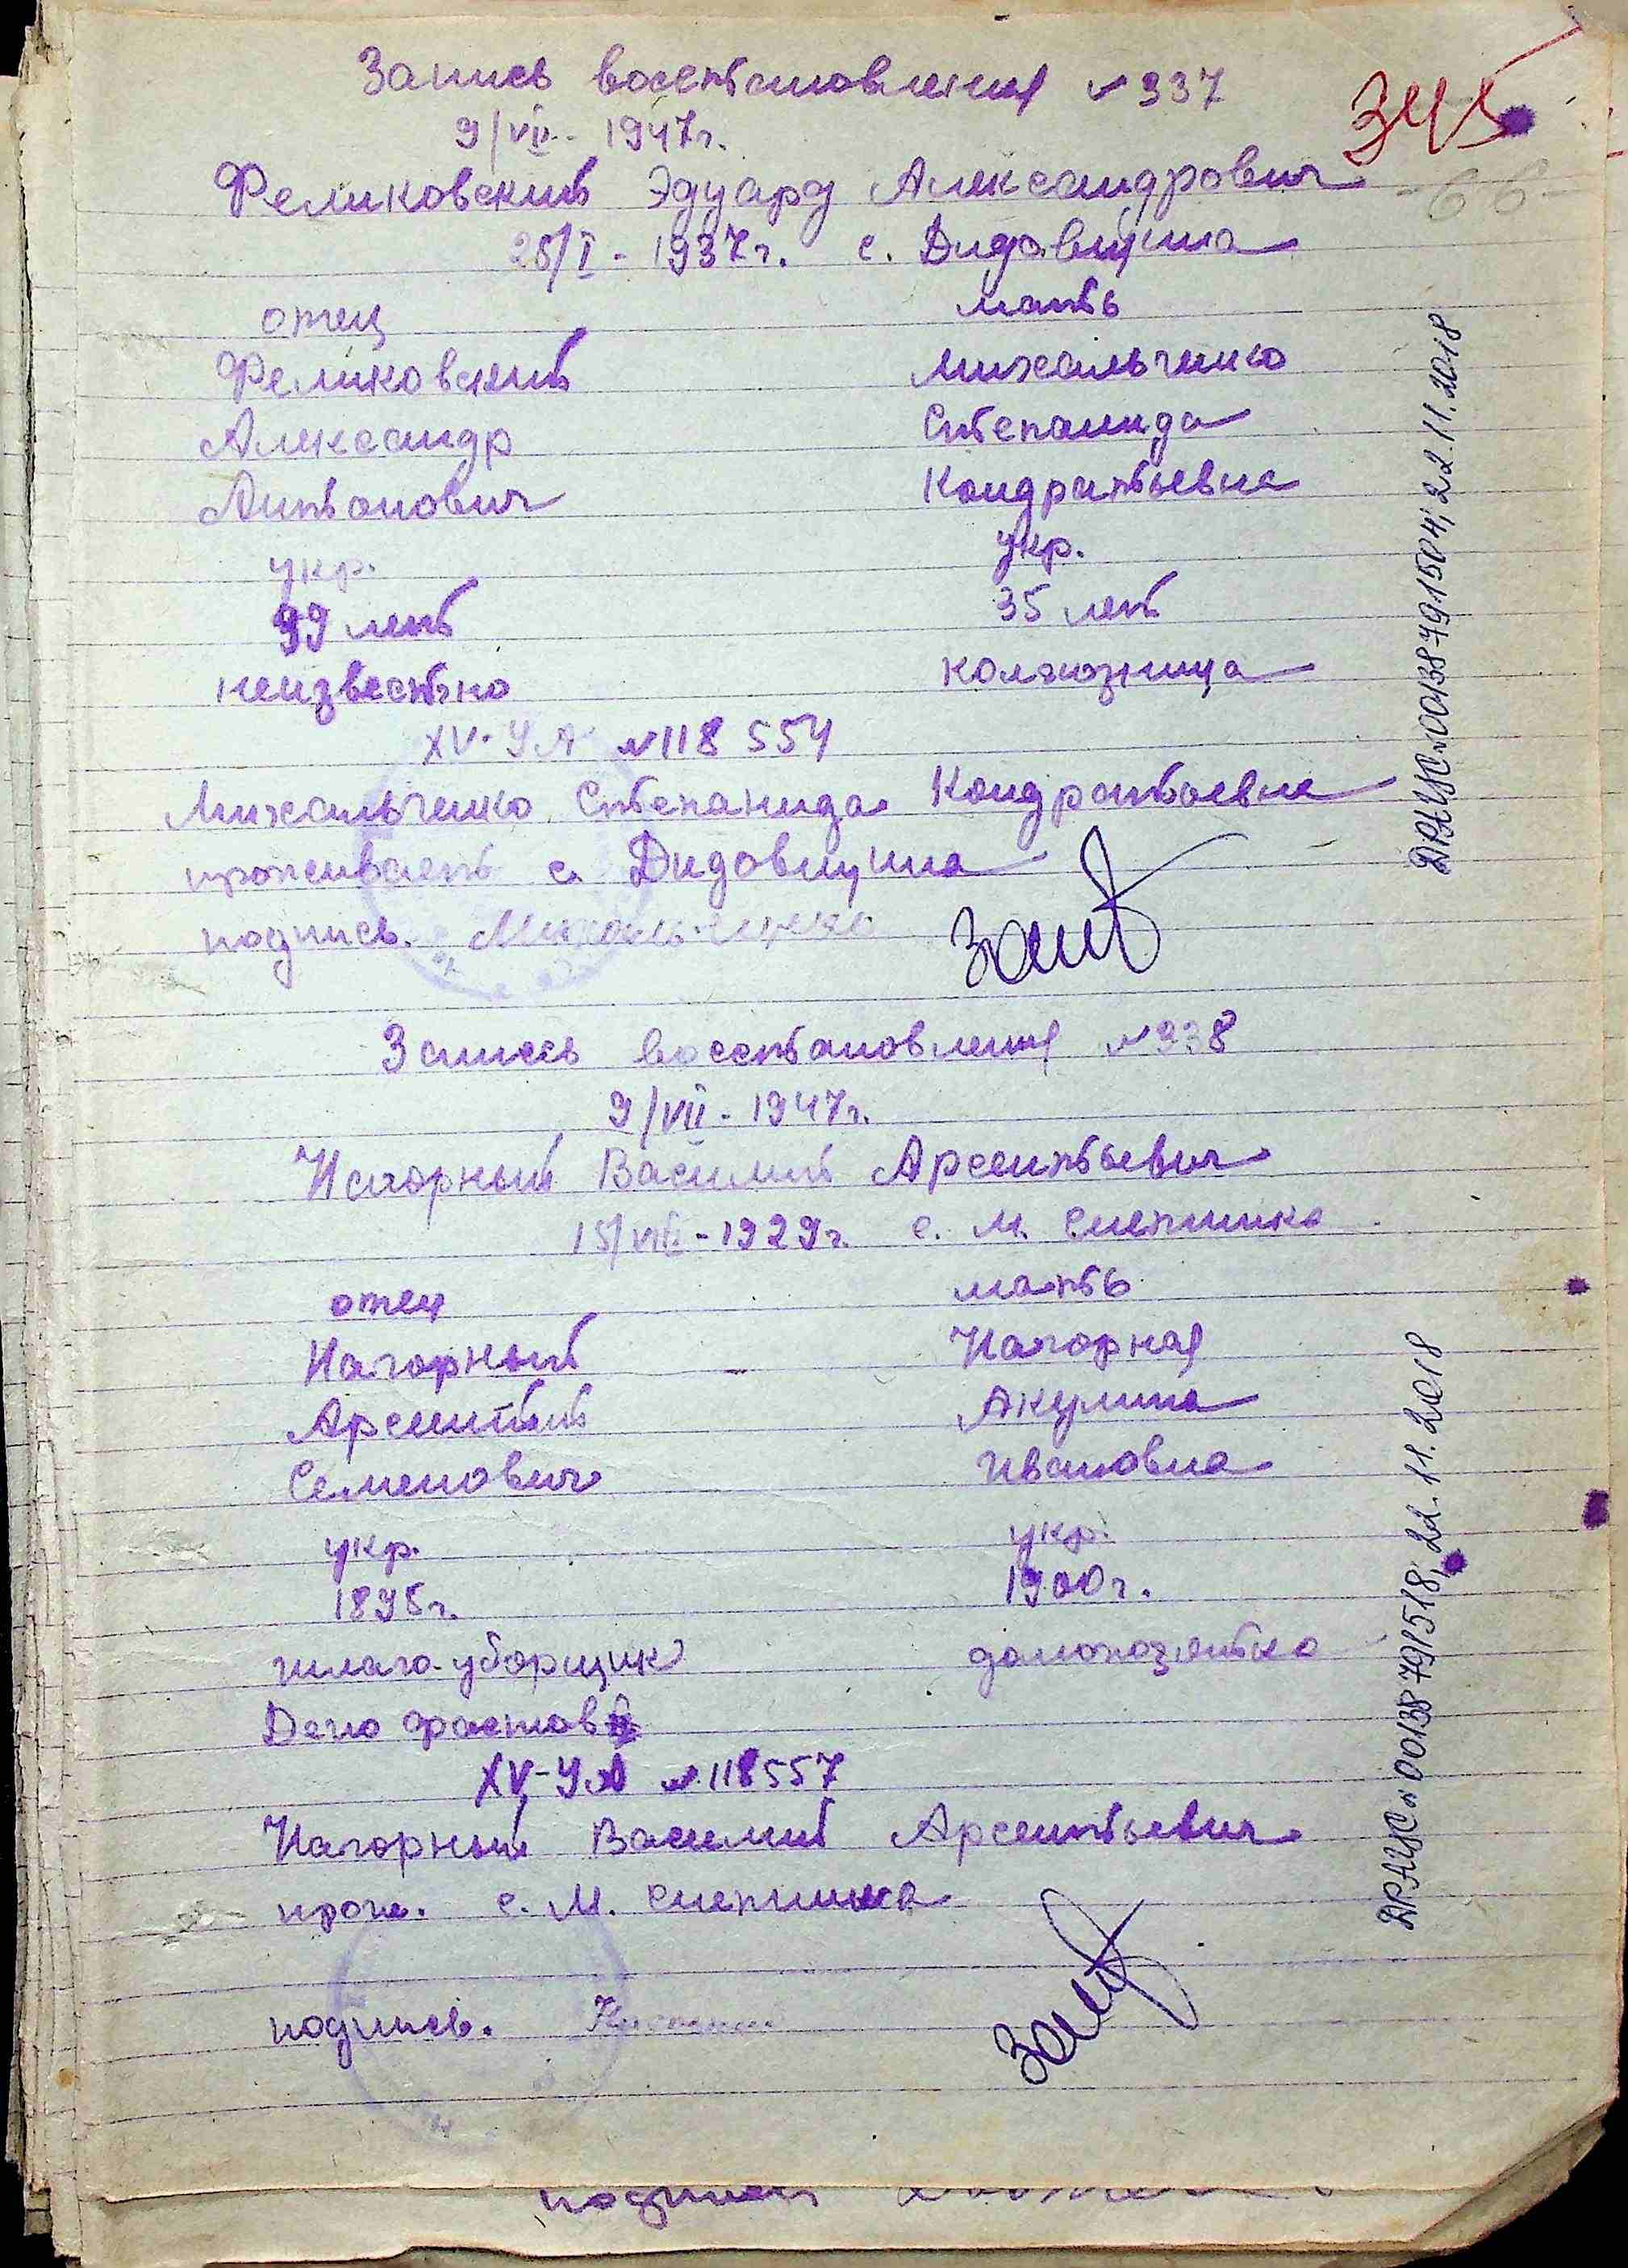 Запись восстановления № 337
345
9/VII - 1947г.
Феликовский Эдуард Александрович
66
25/I - 1937г. с. Дидовщина
отец мать
Феликовский Михальченко
Александр Степанида
Антонович Кондратьевна
укр. укр.
39 лет 35 лет
неизвестно колхозница
XV-УА №118 554
Михальченко Степанида Кондратьевна
проживает с. Дидовщина
подпись. Михальченко
ДРАЦС 00138791504, 22.11.2018
Запись восстановления № 338
9/VII - 1947г.
Нагорный Василий Арсентьевич
15/VIII - 1929г. с. М. Снетинка
отец мать
Нагорный Нагорная
Арсентий Акулина
Семенович Ивановна
укр. укр.
1895г. 1900г.
шлако-уборщик домохозяйка
Депо Фастов
XV-УА № 118557
Нагорный Василий Арсентьевич
прож. с. М. Снетинка
подпись.
ДРАЦС 00138791518, 22.11.2018
подпись